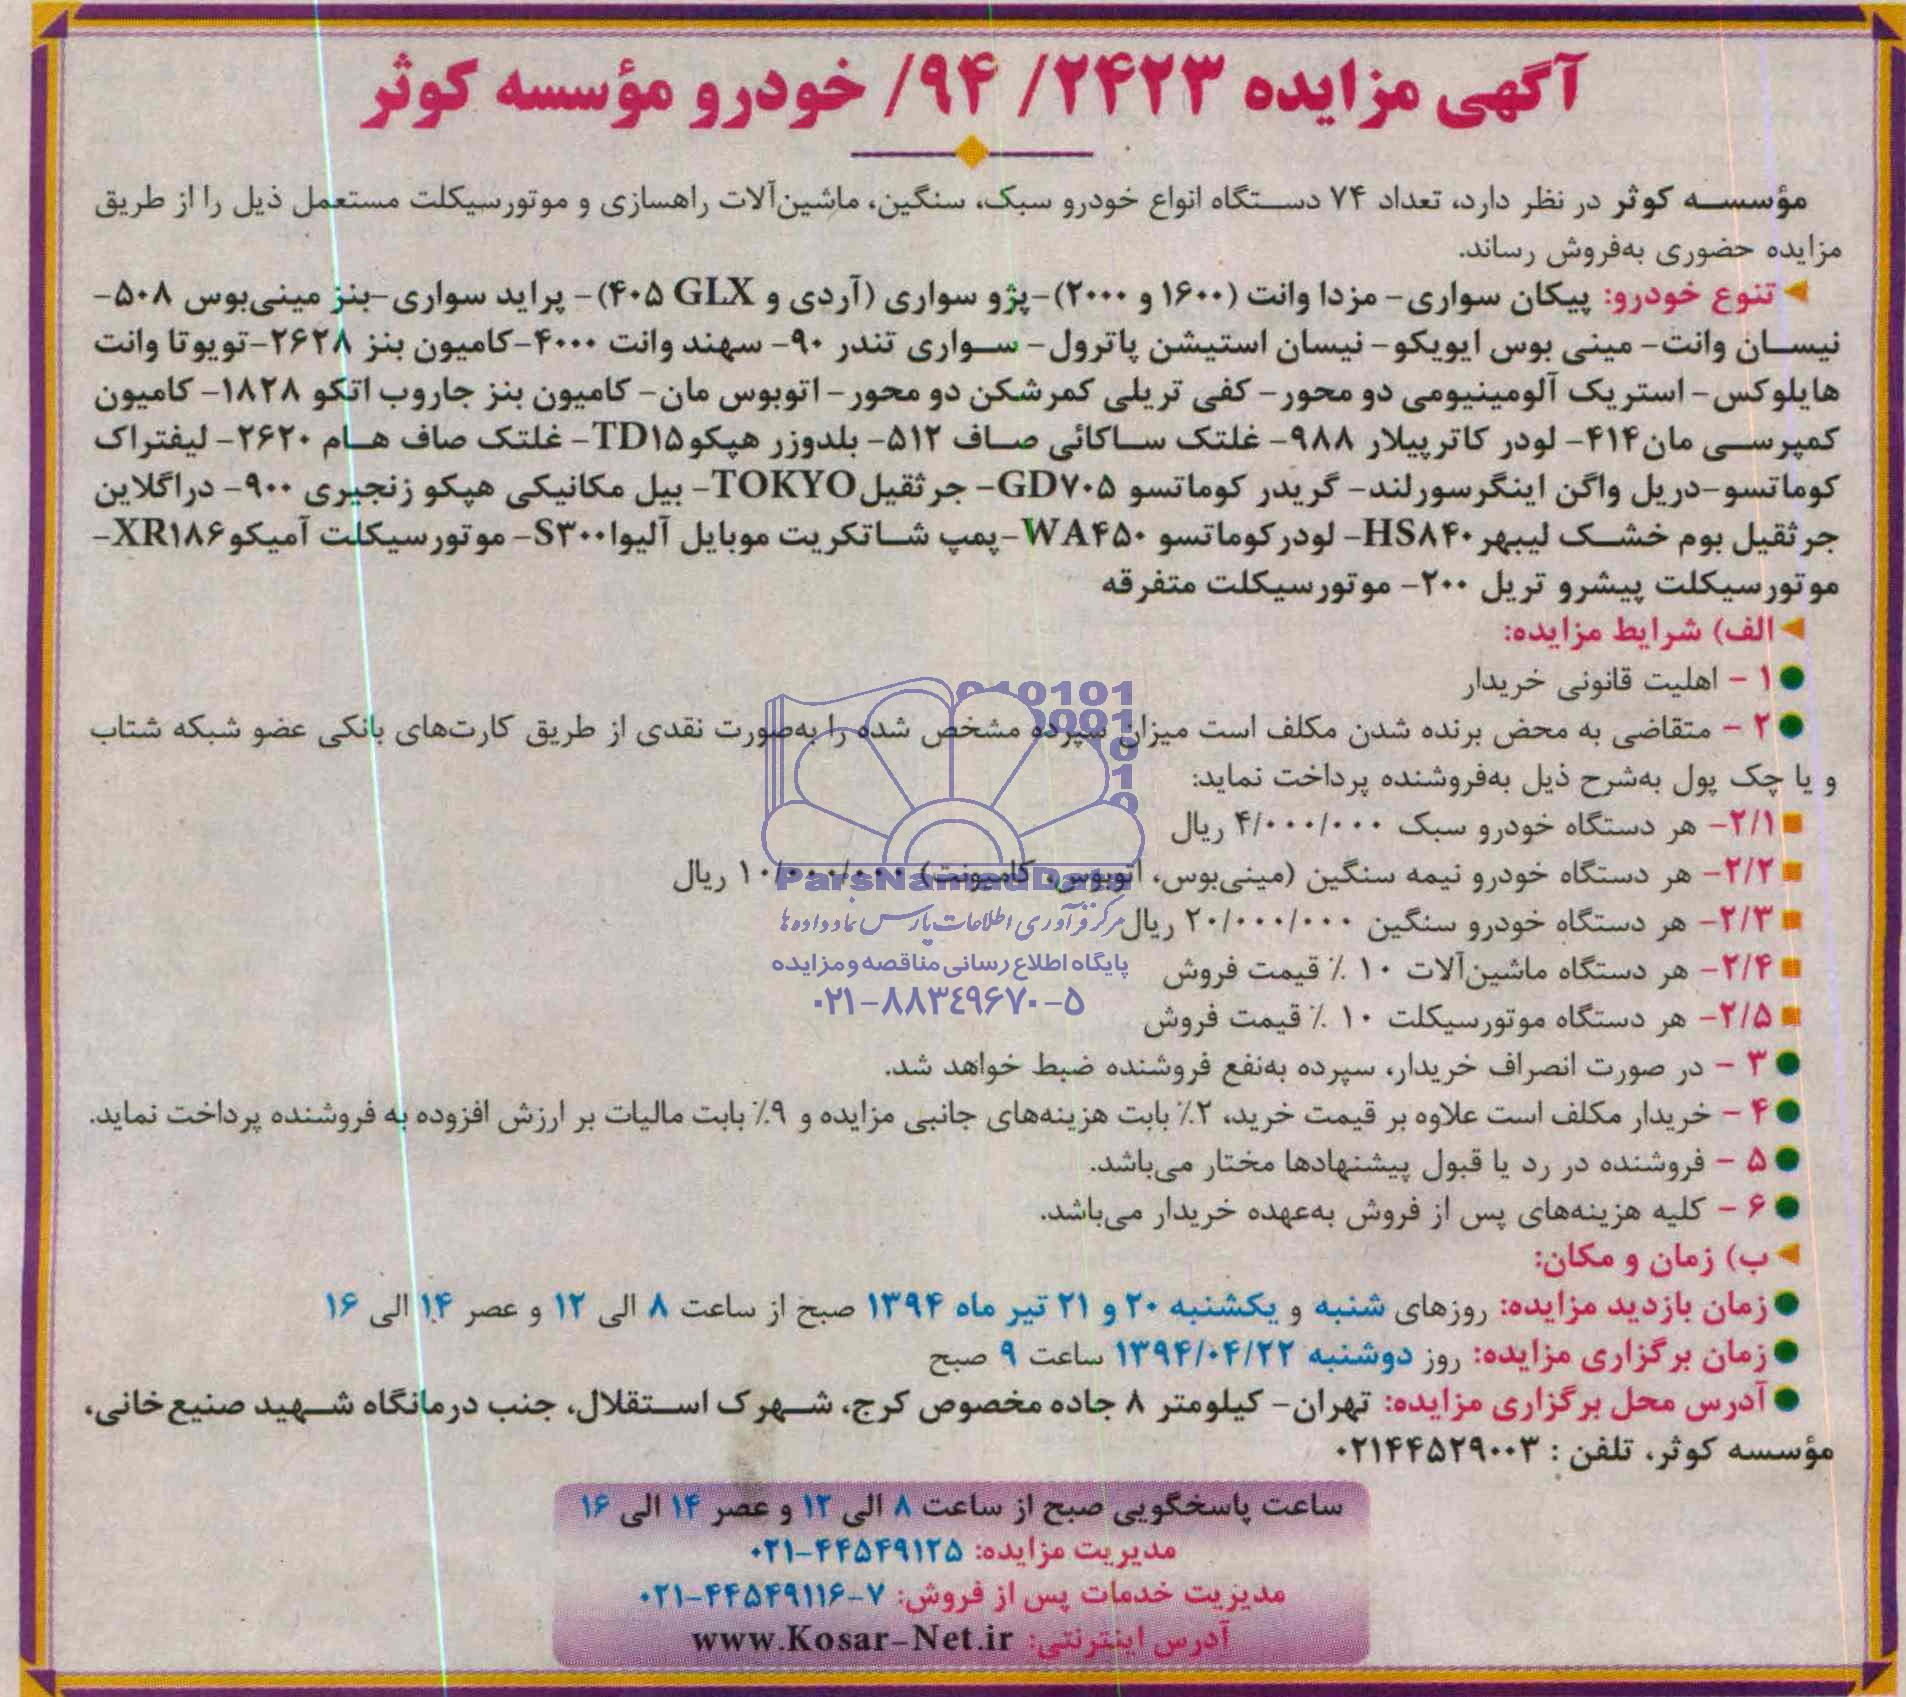 آگهی مزایده ۲۴۲۳/ ۹۴/ خودرو مؤسسه کوثر
مؤسسه کوثر در نظر دارد، تعداد ۷۴ دستگاه انواع خودرو سبک، سنگین، ماشین‌آلات راهسازی و موتورسیکلت مستعمل ذیل را از طریق
مزایده حضوری به‌فروش رساند.
تنوع خودرو: پیکان سواری- مزدا وانت (۱۶۰۰ و ۲۰۰۰)-پژو سواری (آردی و GLX ۴۰۵)- پراید سواری-بنز مینی‌بوس ۵۰۸-
نیسان وانت- مینی بوس ایویکو- نیسان استیشن پاترول- سواری تندر ۹۰- سهند وانت ۴۰۰۰-کامیون بنز ۲۶۲۸-تویوتا وانت
هایلوکس- استریک آلومینیومی دو محور- کفی تریلی کمرشکن دو محور- اتوبوس مان- کامیون بنز جاروب اتکو ۱۸۲۸- کامیون
کمپرسی مان۴۱۴- لودر کاترپیلار ۹۸۸- غلتک ساکائی صاف ۵۱۲- بلدوزر هپکوTD۱۵- غلتک صاف هام ۲۶۲۰- لیفتراک
کوماتسو-دریل واگن اینگرسورلند- گریدر کوماتسو GD۷۰۵- جرثقیلTOKYO- بیل مکانیکی هپکو زنجیری ۹۰۰- دراگلاین
جرثقیل بوم خشک لیبهرHS۸۴۰- لودرکوماتسو WA۴۵۰-پمپ شاتکریت موبایل آلیواS۳۰۰- موتورسیکلت آمیکوXR۱۸۶-
موتورسیکلت پیشرو تریل ۲۰۰- موتورسیکلت متفرقه
الف) شرایط مزایده:
۱ - اهلیت قانونی خریدار
۲ - متقاضی به محض برنده شدن مکلف است میزان سپرده مشخص شده را به‌صورت نقدی از طریق کارت‌های بانکی عضو شبکه شتاب
و یا چک پول به‌شرح ذیل به‌فروشنده پرداخت نماید:
۲/۱- هر دستگاه خودرو سبک ۴/۰۰۰/۰۰۰ ریال
۲/۲- هر دستگاه خودرو نیمه سنگین (مینی‌بوس، اتوبوس، کامیونت) ۱۰/۰۰۰/۰۰۰ ریال
۲/۳- هر دستگاه خودرو سنگین ۲۰/۰۰۰/۰۰۰ ریال
۲/۴- هر دستگاه ماشین‌آلات ۱۰ ٪ قیمت فروش
۲/۵- هر دستگاه موتورسیکلت ۱۰ ٪ قیمت فروش
۳ - در صورت انصراف خریدار، سپرده به‌نفع فروشنده ضبط خواهد شد.
۴ - خریدار مکلف است علاوه بر قیمت خرید، ۲٪ بابت هزینه‌های جانبی مزایده و ۹٪ بابت مالیات بر ارزش افزوده به فروشنده پرداخت نماید.
۵ - فروشنده در رد یا قبول پیشنهادها مختار می‌باشد.
۶ - کلیه هزینه‌های پس از فروش به‌عهده خریدار می‌باشد.
ب) زمان و مکان:
زمان بازدید مزایده: روزهای شنبه و یکشنبه ۲۰ و ۲۱ تیر ماه ۱۳۹۴ صبح از ساعت ۸ الی ۱۲ و عصر ۱۴ الی ۱۶
زمان برگزاری مزایده: روز دوشنبه ۱۳۹۴/۰۴/۲۲ ساعت ۹ صبح
آدرس محل برگزاری مزایده: تهران- کیلومتر ۸ جاده مخصوص کرج، شهرک استقلال، جنب درمانگاه شهید صنیع‌خانی،
مؤسسه کوثر، تلفن : ۰۲۱۴۴۵۲۹۰۰۳
ساعت پاسخگویی صبح از ساعت ۸ الی ۱۲ و عصر ۱۴ الی ۱۶
مدیریت مزایده: ۰۲۱-۴۴۵۴۹۱۲۵
مدیریت خدمات پس از فروش: ۰۲۱-۴۴۵۴۹۱۱۶-۷
آدرس اینترنتی: www.Kosar-Net.ir
ParsNamadData
مرکز فرآوری اطلاعات پارس نماد داده‌ها
پایگاه اطلاع رسانی مناقصه و مزایده
۰۲۱-۸۸۳۴۹۶۷۰-۵